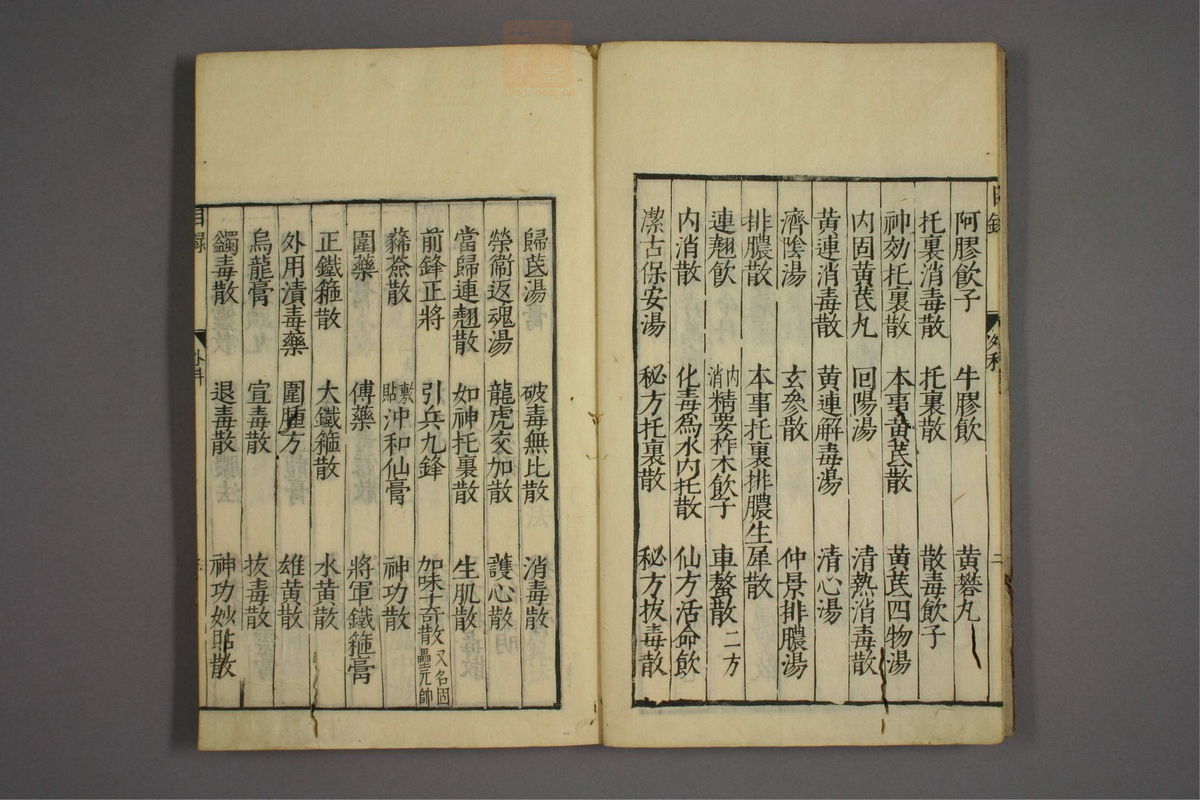 目錄
阿膠飲子 牛膠飲 黄礬丸
托裏消毒散 托裏散 散毒飲子
神効托裏散 本事黄芪散 黄芪四物湯
内固黄芪丸 回陽湯 清熱消毒散
黄連消毒散 黄連解毒湯 清心湯
濟陰湯 玄參散 仲景排膿湯
排膿散 本事托裏排膿生犀散
連翹飲 内消精要柞木飲子 車螯散二方
内消散 化毒為水内托散 仙方活命飲
潔古保安湯 秘方托裏散 秘方拔毒散
歸芪湯 破毒無比散 消毒散
榮衞返魂湯 龍虎交加散 護心散
當歸連翹散 如神托裏散 生肌散
前鋒正將 引兵九鋒 加味十奇散又名固壘元帥
豨薟散 敷貼沖和仙膏 神功散
圍藥 傅藥 將軍鐵箍膏
正鐵箍散 大鐵箍散 水黄散
外用漬毒藥 圍腫方 雄黄散
烏龍膏 宣毒散 拔毒散
蠲毒散 退毒散 神功妙貼散
目録 外科